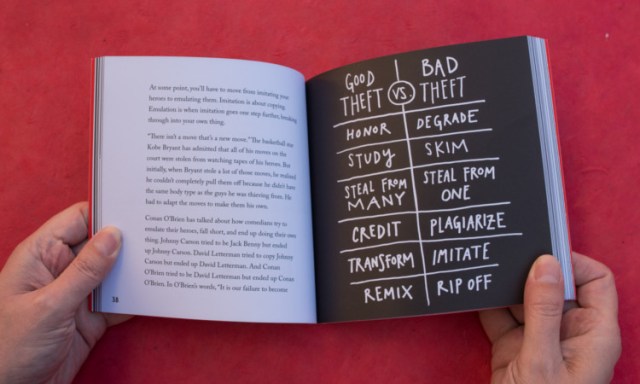 At some point, you'll have to move from imitating your
heroes to emulating them. Imitation is about copying.
Emulation is when imitation goes one step further, breaking
through into your own thing.
"There isn't a move that's a new move." The basketball star
Kobe Bryant has admitted that all of his moves on the
court were stolen from watching tapes of his heroes. But
initially, when Bryant stole a lot of those moves, he realized
he couldn't completely pull them off because he didn't have
the same body type as the guys he was thieving from. He
had to adapt the moves to make them his own.
Conan O'Brien has talked about how comedians try to
emulate their heroes, fall short, and end up doing their own
thing. Johnny Carson tried to be Jack Benny but ended
up Johnny Carson. David Letterman tried to copy Johnny
Carson but ended up David Letterman. And Conan
O'Brien tried to be David Letterman but ended up Conan
O'Brien. In O'Brien's words, "It is our failure to become
38
GOOD THEFT VS. BAD THEFT
HONOR DEGRADE
STUDY SKIM
STEAL FROM MANY STEAL FROM ONE
CREDIT PLAGIARIZE
TRANSFORM IMITATE
REMIX RIP OFF